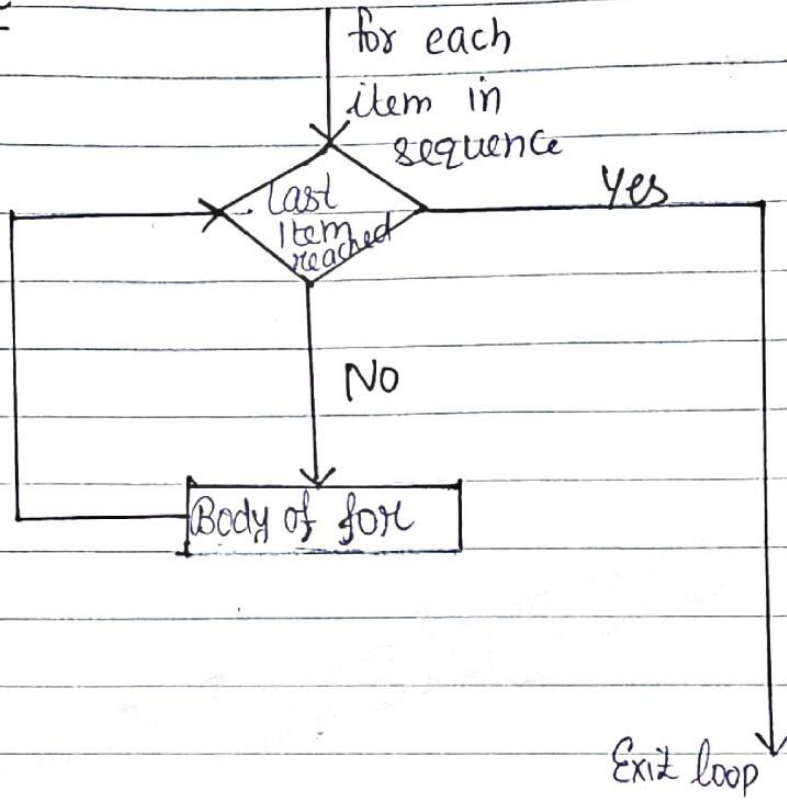 for each
item in
sequence
Yes
last
Item
reached
No
Body of for
Exit loop